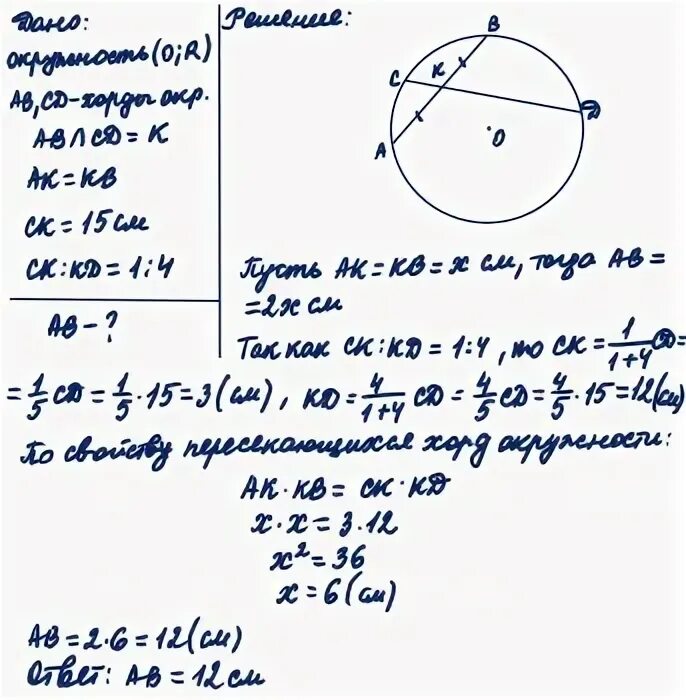 Дано:
окружность (O; R)
AB, CD - хорды окр.
AB ∩ CD = K
AK = KB
CK = 15 см
CK : KD = 1 : 4
AB - ?
Решение:
B
C
K
D
A
O
Пусть AK = KB = x см, тогда AB =
= 2x см
Так как CK : KD = 1 : 4, то CK = 1/(1+4) CD =
= 1/5 CD = 1/5 · 15 = 3 (см), KD = 4/(1+4) CD = 4/5 CD = 4/5 · 15 = 12 (см)
По свойству пересекающихся хорд окружности:
AK · KB = CK · KD
x · x = 3 · 12
x² = 36
x = 6 (см)
AB = 2 · 6 = 12 (см)
Ответ: AB = 12 см